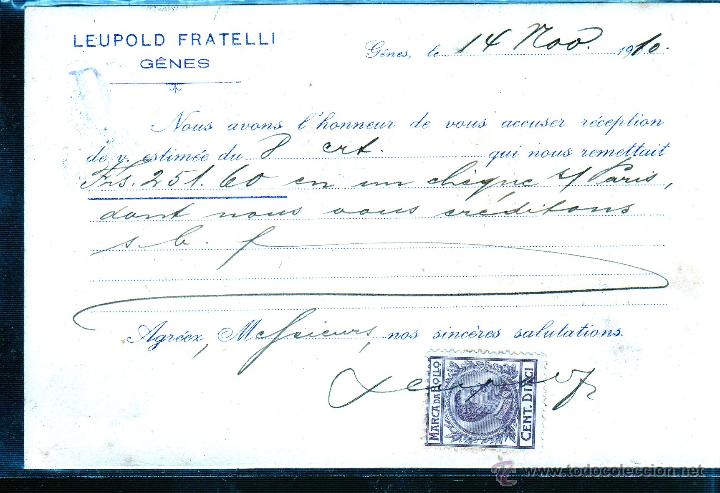 LEUPOLD FRATELLI
GÊNES
Gênes, le 14 Nov. 1910.
Nous avons l'honneur de vous accuser réception
de v. estimée du 8 crt. qui nous remettait
Frs. 251.60 en un chèque s/ Paris,
dont nous vous créditons
s. b. f.
Agréez, Messieurs, nos sincères salutations.
MARCA DA BOLLO
CENT. DIECI
www.todocoleccion.net